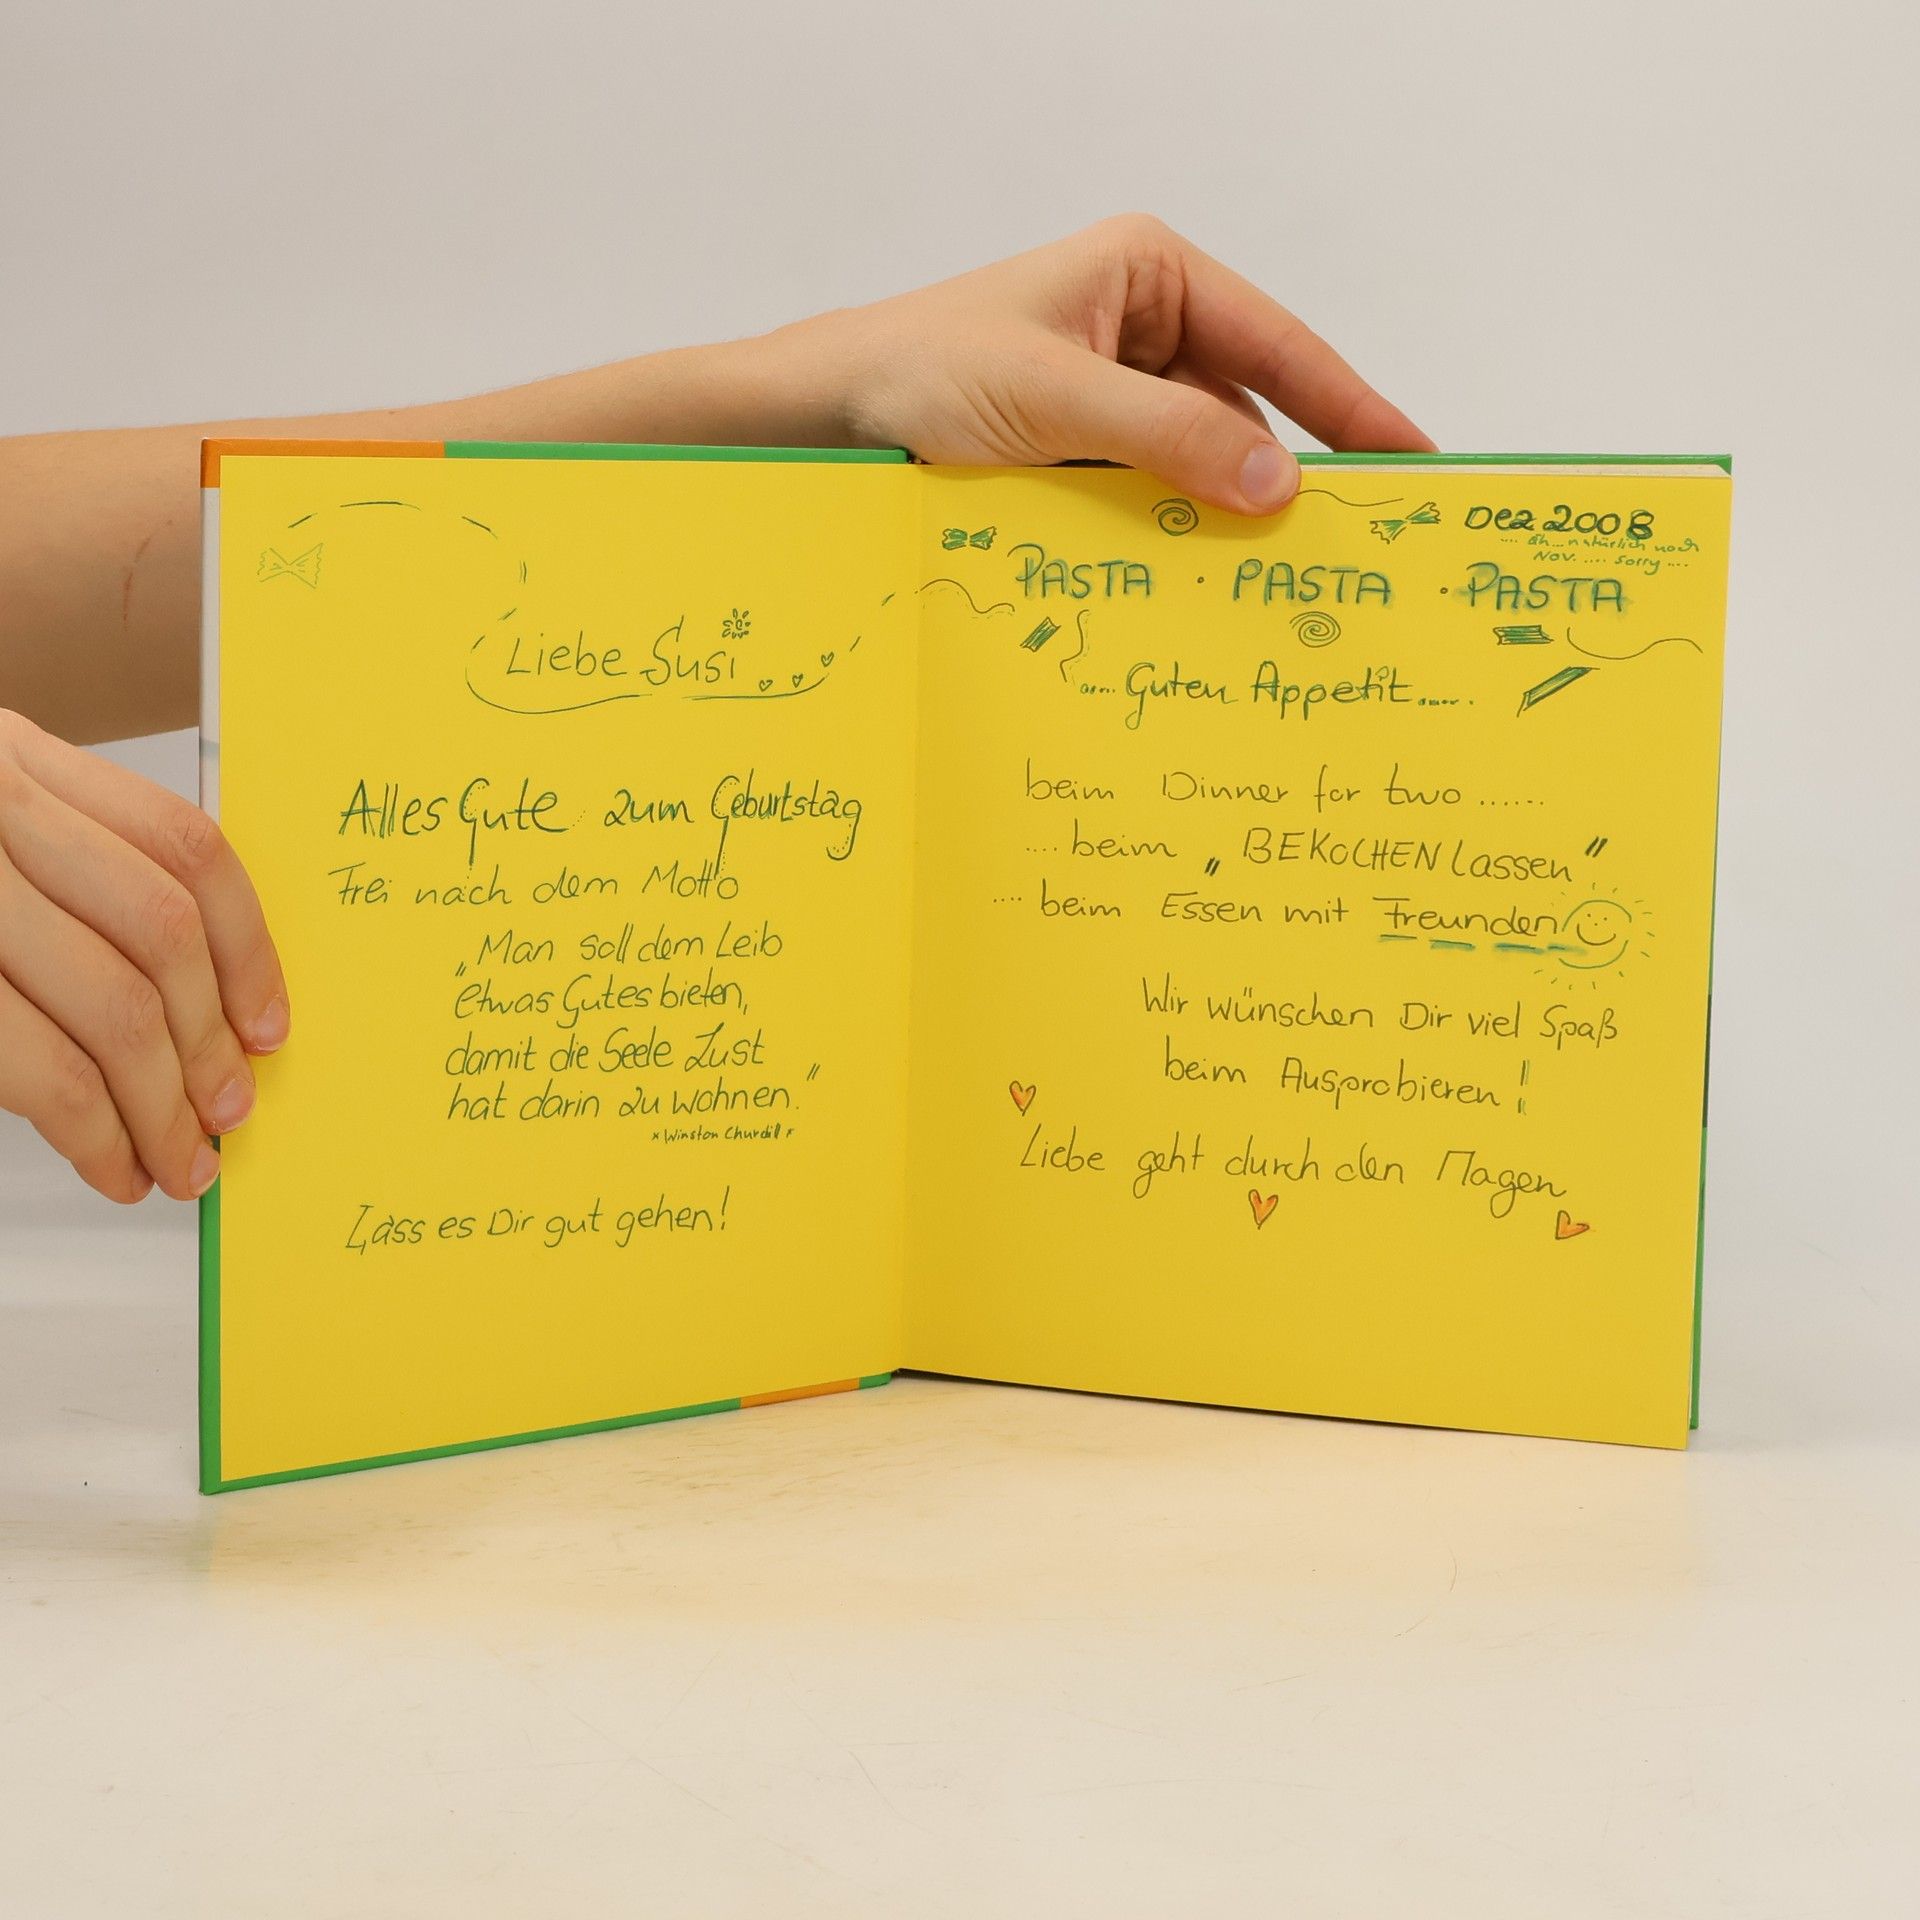 Liebe Susi
Alles Gute zum Geburtstag
Frei nach dem Motto
„Man soll dem Leib
etwas Gutes bieten,
damit die Seele Lust
hat darin zu wohnen."
* Winston Churchill *
Lass es Dir gut gehen!
Dez 2008
.... äh... natürlich noch
Nov. .... sorry ....
PASTA · PASTA · PASTA
.... Guten Appetit .....
beim Dinner for two ......
.... beim „BEKOCHEN lassen"
.... beim Essen mit Freunden
Wir wünschen Dir viel Spaß
beim Ausprobieren!
Liebe geht durch den Magen